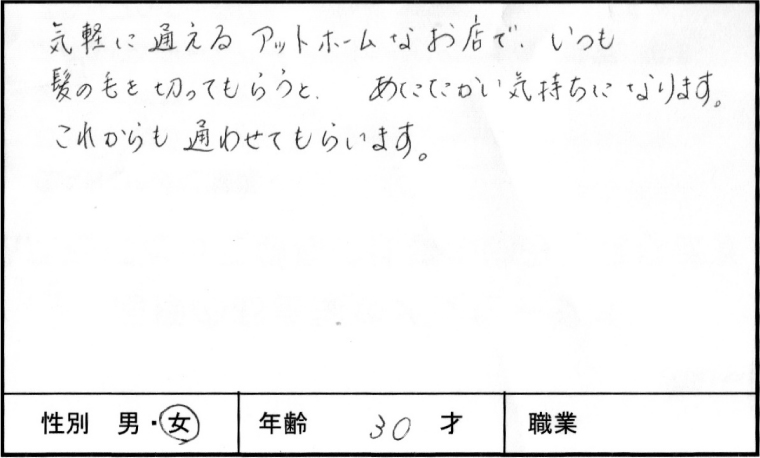 気軽に通えるアットホームなお店で、いつも
髪の毛を切ってもらうと、あたたかい気持ちになります。
これからも通わせてもらいます。
性別 男・女 年齢 30 才 職業